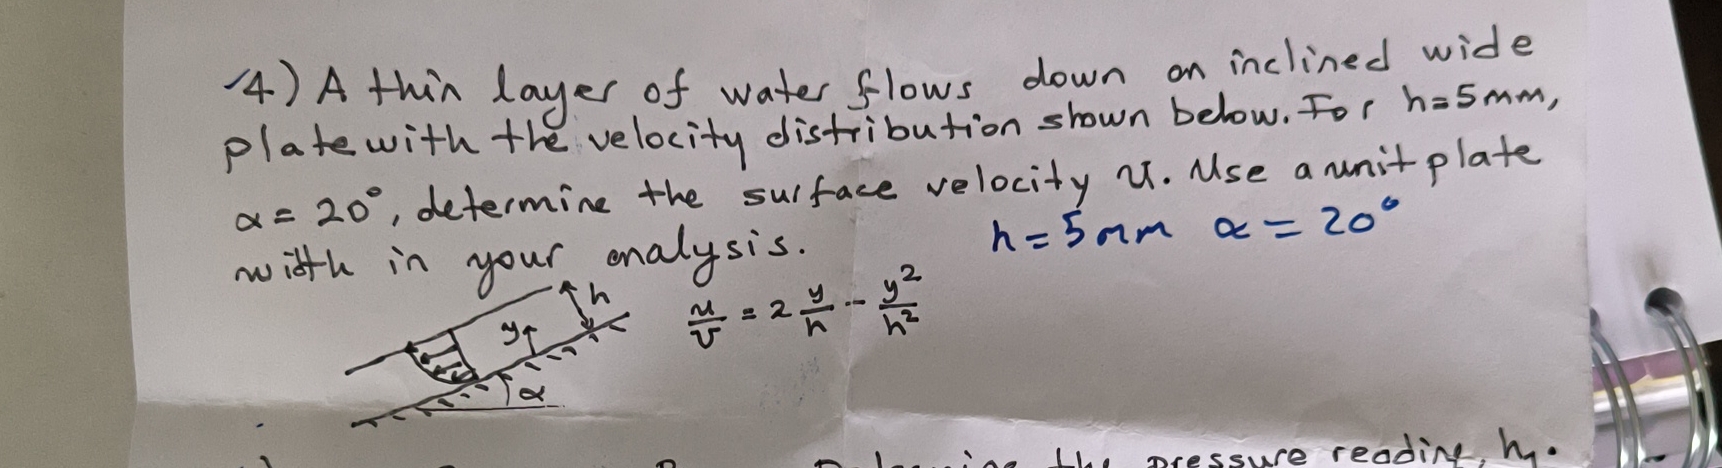 4) A thin layer of water flows down an inclined wide
plate with the velocity distribution shown below. For h=5mm,
α = 20°, determine the surface velocity U. Use a unit plate
width in your analysis.
h = 5mm α = 20°
h
y
u/U = 2 y/h - y²/h²
α
the pressure reading, h₁.